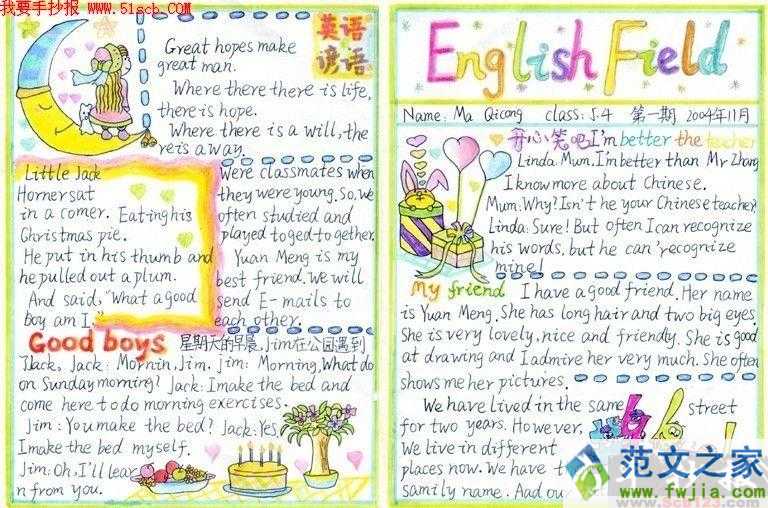 我要手抄报 www.51scb.com
英语
谚语
Great hopes make
great man.
Where there there is life,
there is hope.
Where there is a will, the
re is a way.
Little Jack
Horner sat
in a corner. Eating his
Christmas pie.
He put in his thumb and
he pulled out a plum.
And said, "What a good
boy am I."
Were classmates when
they were young. So, we
often studied and
played to ged-to gether.
Yuan Meng is my
best friend. We will
send E-mails to
each other.
Good boys 星期天的早晨, Jim在公园遇到
Jack, Jack: Mornin, Jim, Jim: Morning, What do
on Sunday morning? Jack: I make the bed and
come here to do morning exercises.
Jim: You make the bed? Jack: Yes,
I make the bed myself.
Jim: Oh, I'll lear
n from you.
English Field
Name: Ma Qicong class: 5.4 第一期 2004年11月
开心笑吧 I'm better the teacher
Linda: Mum, I'm better than Mr Zhang
I know more about Chinese.
Mum: Why? Isn't he your Chinese teacher?
Linda: Sure! But often I can recognize
his words, but he can' recognize
mine!
My friend I have a good friend. Her name
is Yuan Meng. She has long hair and two big eyes.
She is very lovely, nice and friendly. She is good
at drawing and I admire her very much. She often
shows me her pictures.
We have lived in the same street
for two years. However,
We live in different
places now. We have t
samily name. And ou
范文之家
www.fwjia.com